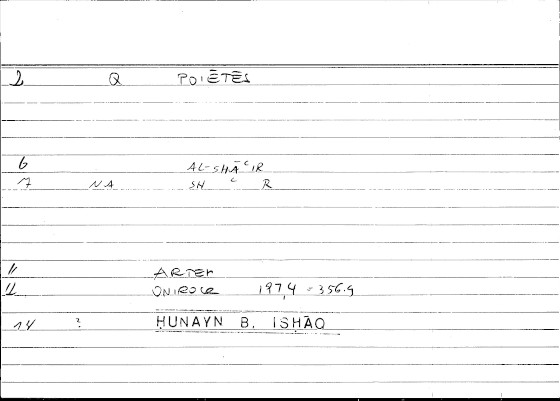 2 Q POIĒTĒS
6 AL-SHĀʿIR
7 NA SH ʿ R
11 ARTEM
12 ONIROCR 197,4 = 356.9
14 ? ḤUNAYN B. ISḤĀQ